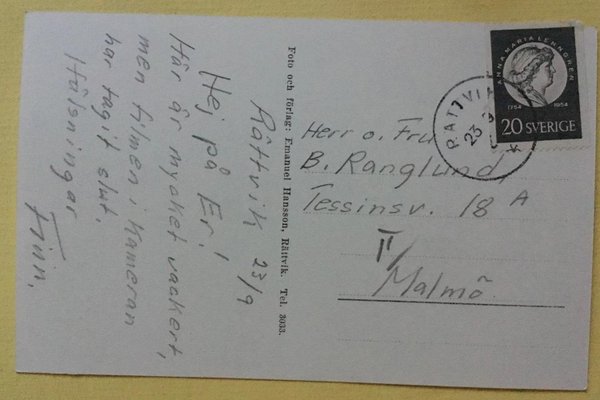 Rättvik 23/9
Hej på Er!
Här är mycket vackert,
men filmen i Kameran
har tagit slut.
Hälsningar
Finn.
Foto och förlag: Emanuel Hansson, Rättvik. Tel. 3033.
ANNA MARIA LENNGREN
1754 1954
20 SVERIGE
RÄTTVIK
23
Herr o. Fru
B. Ranglund,
Tessinsv. 18 A
II/
Malmö